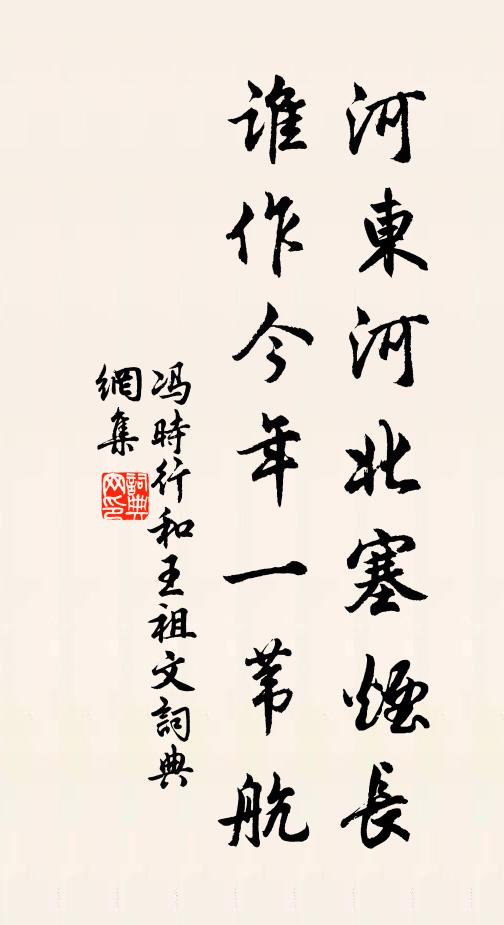 河東河北塞煙長
誰作今年一葦航
冯時行和王祖文詞典
網集
詞典
网印